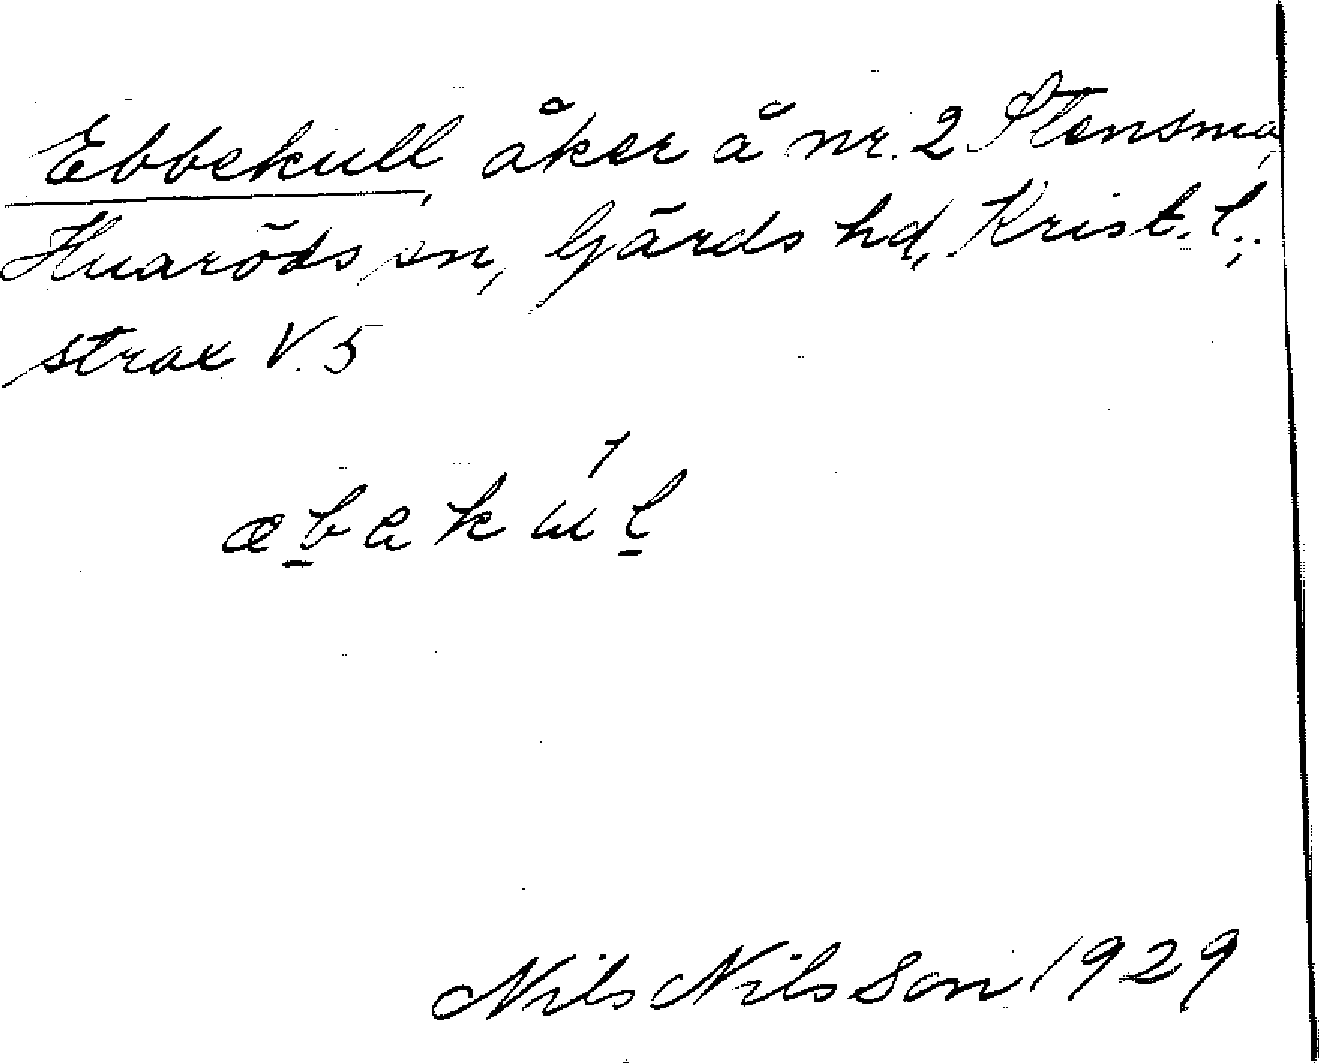 Ebbekull, åker å nr. 2 Stensma,
Huaröds sn, Gärds hd, Krist. l.;
strax V. 5
æbakúl
Nils Nilsson 1929